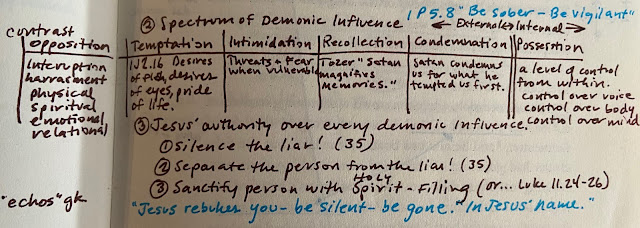 ② Spectrum of Demonic Influence
1 P 5.8 "Be sober - Be vigilant"
← External + Internal →
contrast
opposition
Interruption
harrassment
physical
spiritual
emotional
relational
Temptation
1J2.16 Desires
of flesh, desires
of eyes, pride
of life.
Intimidation
Threats + fear
when vulnerable
Recollection
Tozer "Satan
magnifies
memories."
Condemnation
Satan condemns
us for what he
tempted us first.
Possession
a level of control
from within.
control over voice
control over body
control over mind
③ Jesus' authority over every demonic influence.
① Silence the liar! (35)
② Separate the person from the liar! (35)
③ Sanctify person with Holy Spirit - Filling (or... Luke 11.24-26)
"echos" gk
"Jesus rebukes you - be silent - be gone." In Jesus' name."